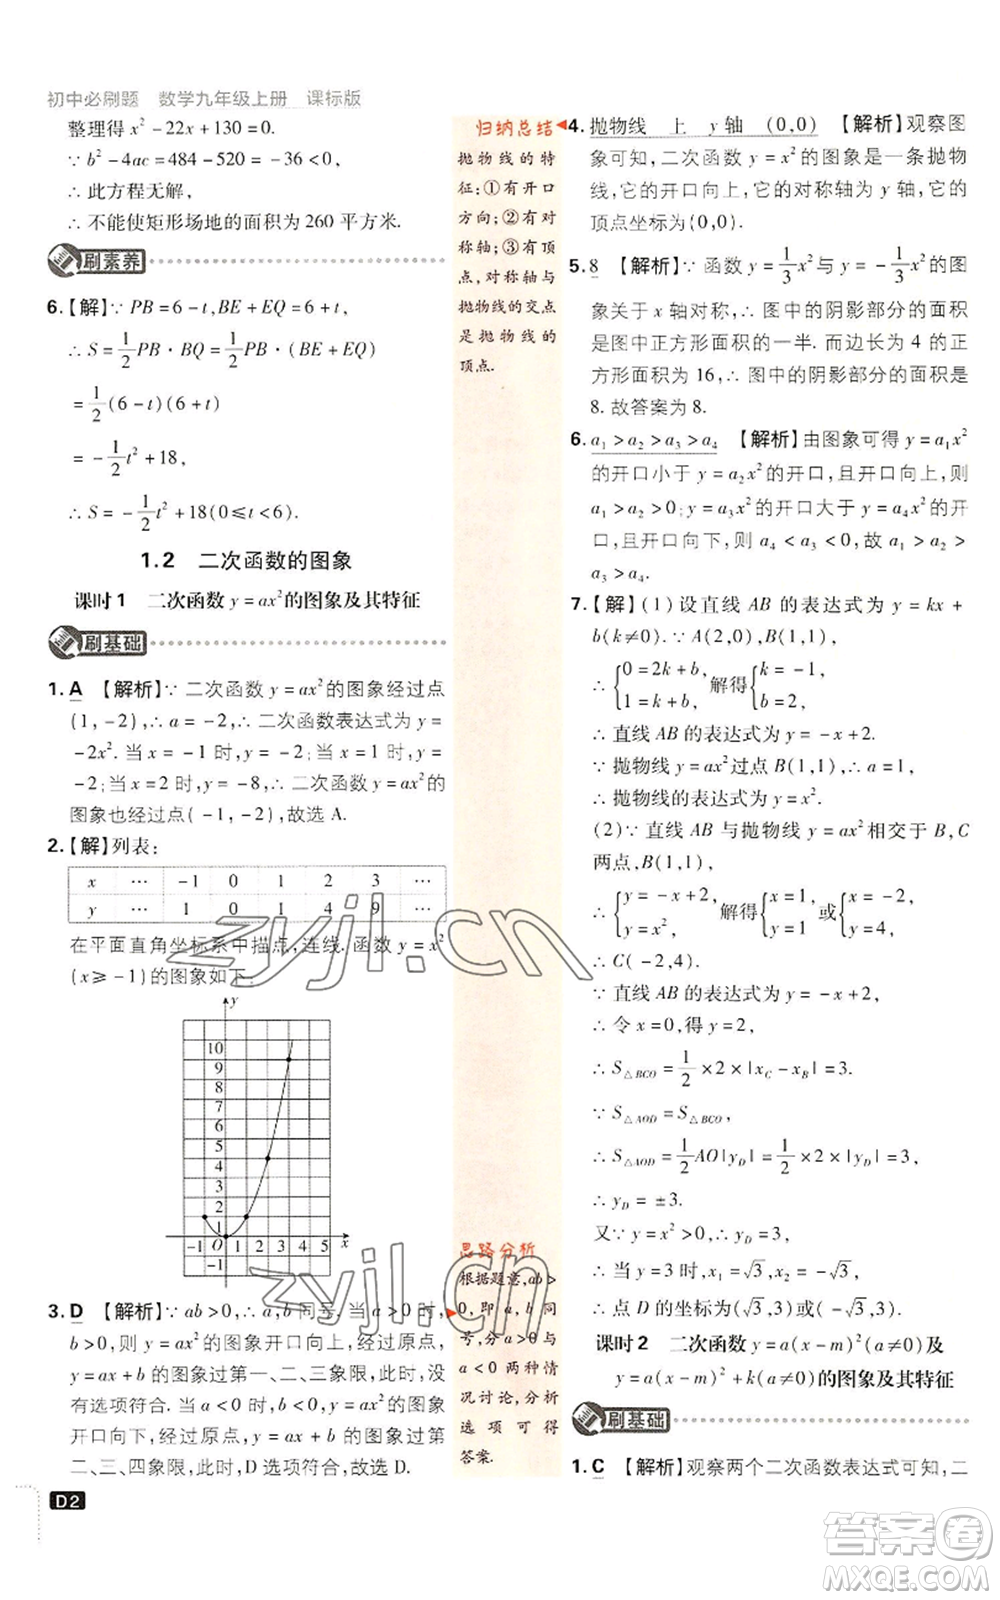 初中必刷题　数学九年级上册　课标版
整理得 x²-22x+130=0.
∵ b²-4ac=484-520=-36<0,
∴ 此方程无解,
∴ 不能使矩形场地的面积为 260 平方米.
刷素养
6.【解】∵ PB=6-t,BE+EQ=6+t,
∴ S=1/2 PB·BQ=1/2 PB·(BE+EQ)
=1/2(6-t)(6+t)
=-1/2 t²+18,
∴ S=-1/2 t²+18(0≤t<6).
1.2　二次函数的图象
课时1　二次函数 y=ax² 的图象及其特征
刷基础
1. A 【解析】∵ 二次函数 y=ax² 的图象经过点
(1,-2),∴ a=-2,∴ 二次函数表达式为 y=
-2x². 当 x=-1 时,y=-2;当 x=1 时,y=
-2;当 x=2 时,y=-8,∴ 二次函数 y=ax² 的
图象也经过点(-1,-2),故选 A.
2.【解】列表:
x … -1 0 1 2 3 …
y … 1 0 1 4 9 …
在平面直角坐标系中描点,连线. 函数 y=x²
(x≥-1)的图象如下.
y
10
9
8
7
6
5
4
3
2
1
-1 O 1 2 3 4 5 x
-1
3. D 【解析】∵ ab>0,∴ a,b 同号. 当 a>0,
b>0,则 y=ax² 的图象开口向上,过原点,
y=ax+b 的图象过第一、二、三象限,此时,没
有选项符合. 当 a<0,b<0 时,则 y=ax² 的图象
开口向下,过原点,y=ax+b 的图象过第
二、三、四象限,此时,D 选项符合,故选 D.
D2
归纳总结
抛物线的特
征:①有开口
方向;②有对
称轴;③有顶
点,对称轴与
抛物线的交点
是抛物线的
顶点.
思路分析
根据题意,ab>
0,即 a,b 同
号,分 a>0 与
a<0 两种情
况讨论,分析
选项可得
答案.
4. 抛物线　上　y 轴　(0,0) 【解析】观察图
象可知,二次函数 y=x² 的图象是一条抛物
线,它的开口向上,它的对称轴为 y 轴,它的
顶点坐标为(0,0).
5. 8 【解析】∵ 函数 y=1/3 x² 与 y=-1/3 x² 的图
象关于 x 轴对称,∴ 图中的阴影部分的面积
是图中正方形面积的一半. 而边长为 4 的正
方形面积为 16,∴ 图中的阴影部分的面积是
8. 故答案为 8.
6. a₁>a₂>a₃>a₄ 【解析】由图象可得 y=a₁x²
的开口小于 y=a₂x² 的开口,且开口向上,则
a₁>a₂>0;y=a₃x² 的开口大于 y=a₄x² 的开
口,且开口向下,则 a₄<a₃<0,故 a₁>a₂>
a₃>a₄.
7.【解】(1)设直线 AB 的表达式为 y=kx+
b(k≠0).∵ A(2,0),B(1,1),
∴ {0=2k+b, 1=k+b, 解得{k=-1, b=2.
∴ 直线 AB 的表达式为 y=-x+2.
∵ 抛物线 y=ax² 过点 B(1,1),∴ a=1,
∴ 抛物线的表达式为 y=x².
(2)∵ 直线 AB 与抛物线 y=ax² 相交于 B,C
两点,B(1,1),
∴ {y=-x+2, y=x², 解得{x=1, y=1 或{x=-2, y=4.
∴ C(-2,4).
∵ 直线 AB 的表达式为 y=-x+2,
∴ 令 x=0,得 y=2,
∴ S△BCO=1/2×2×|x_C-x_B|=3.
∵ S△AOD=S△BCO,
∴ S△AOD=1/2 AO|y_D|=1/2×2×|y_D|=3,
∴ y_D=±3.
又∵ y=x²>0,∴ y_D=3,
∴ 当 y=3 时,x₁=√3,x₂=-√3,
∴ 点 D 的坐标为(√3,3)或(-√3,3).
课时2　二次函数 y=a(x-m)²(a≠0)及
y=a(x-m)²+k(a≠0)的图象及其特征
刷基础
1. C 【解析】观察两个二次函数表达式可知,二
zyjl.cn
zyjl.cn
答案圈
MXQE.COM